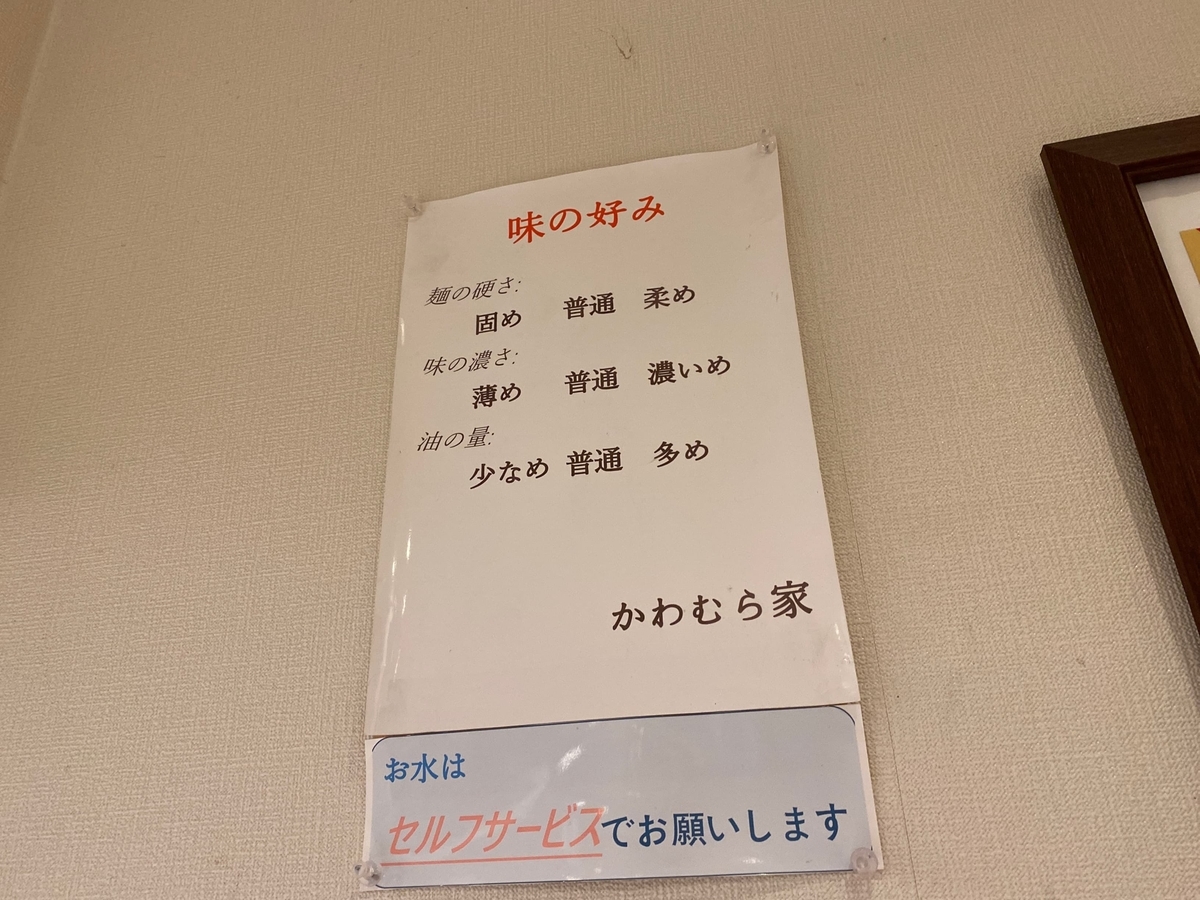 味の好み
麺の硬さ:
固め 普通 柔め
味の濃さ:
薄め 普通 濃いめ
油の量:
少なめ 普通 多め
かわむら家
お水は
セルフサービスでお願いします